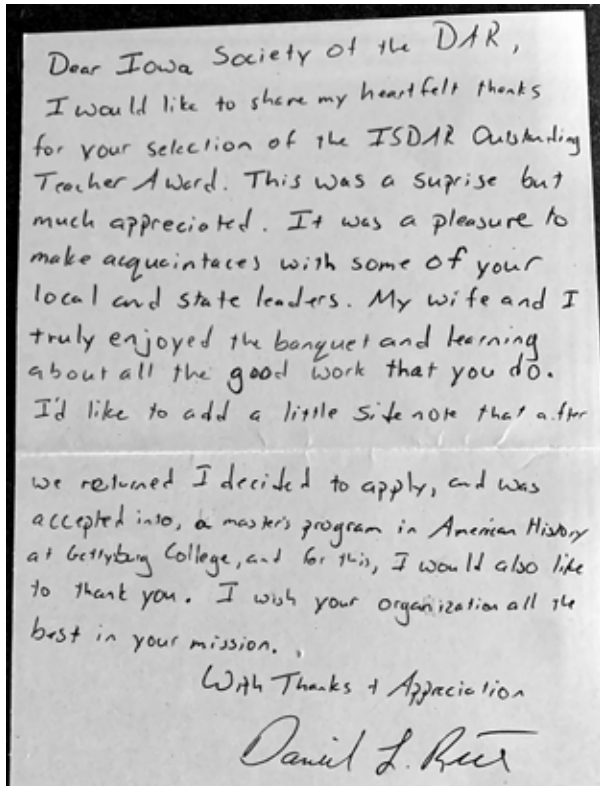 Dear Iowa Society of the DAR,
I would like to share my heartfelt thanks
for your selection of the ISDAR Outstanding
Teacher Award. This was a suprise but
much appreciated. It was a pleasure to
make acquaintaces with some of your
local and state leaders. My wife and I
truly enjoyed the banquet and learning
about all the good work that you do.
I'd like to add a little side note that after
we returned I decided to apply, and was
accepted into, a master's program in American History
at Gettysburg College, and for this, I would also like
to thank you. I wish your organization all the
best in your mission.
With Thanks + Appreciation
Daniel L.